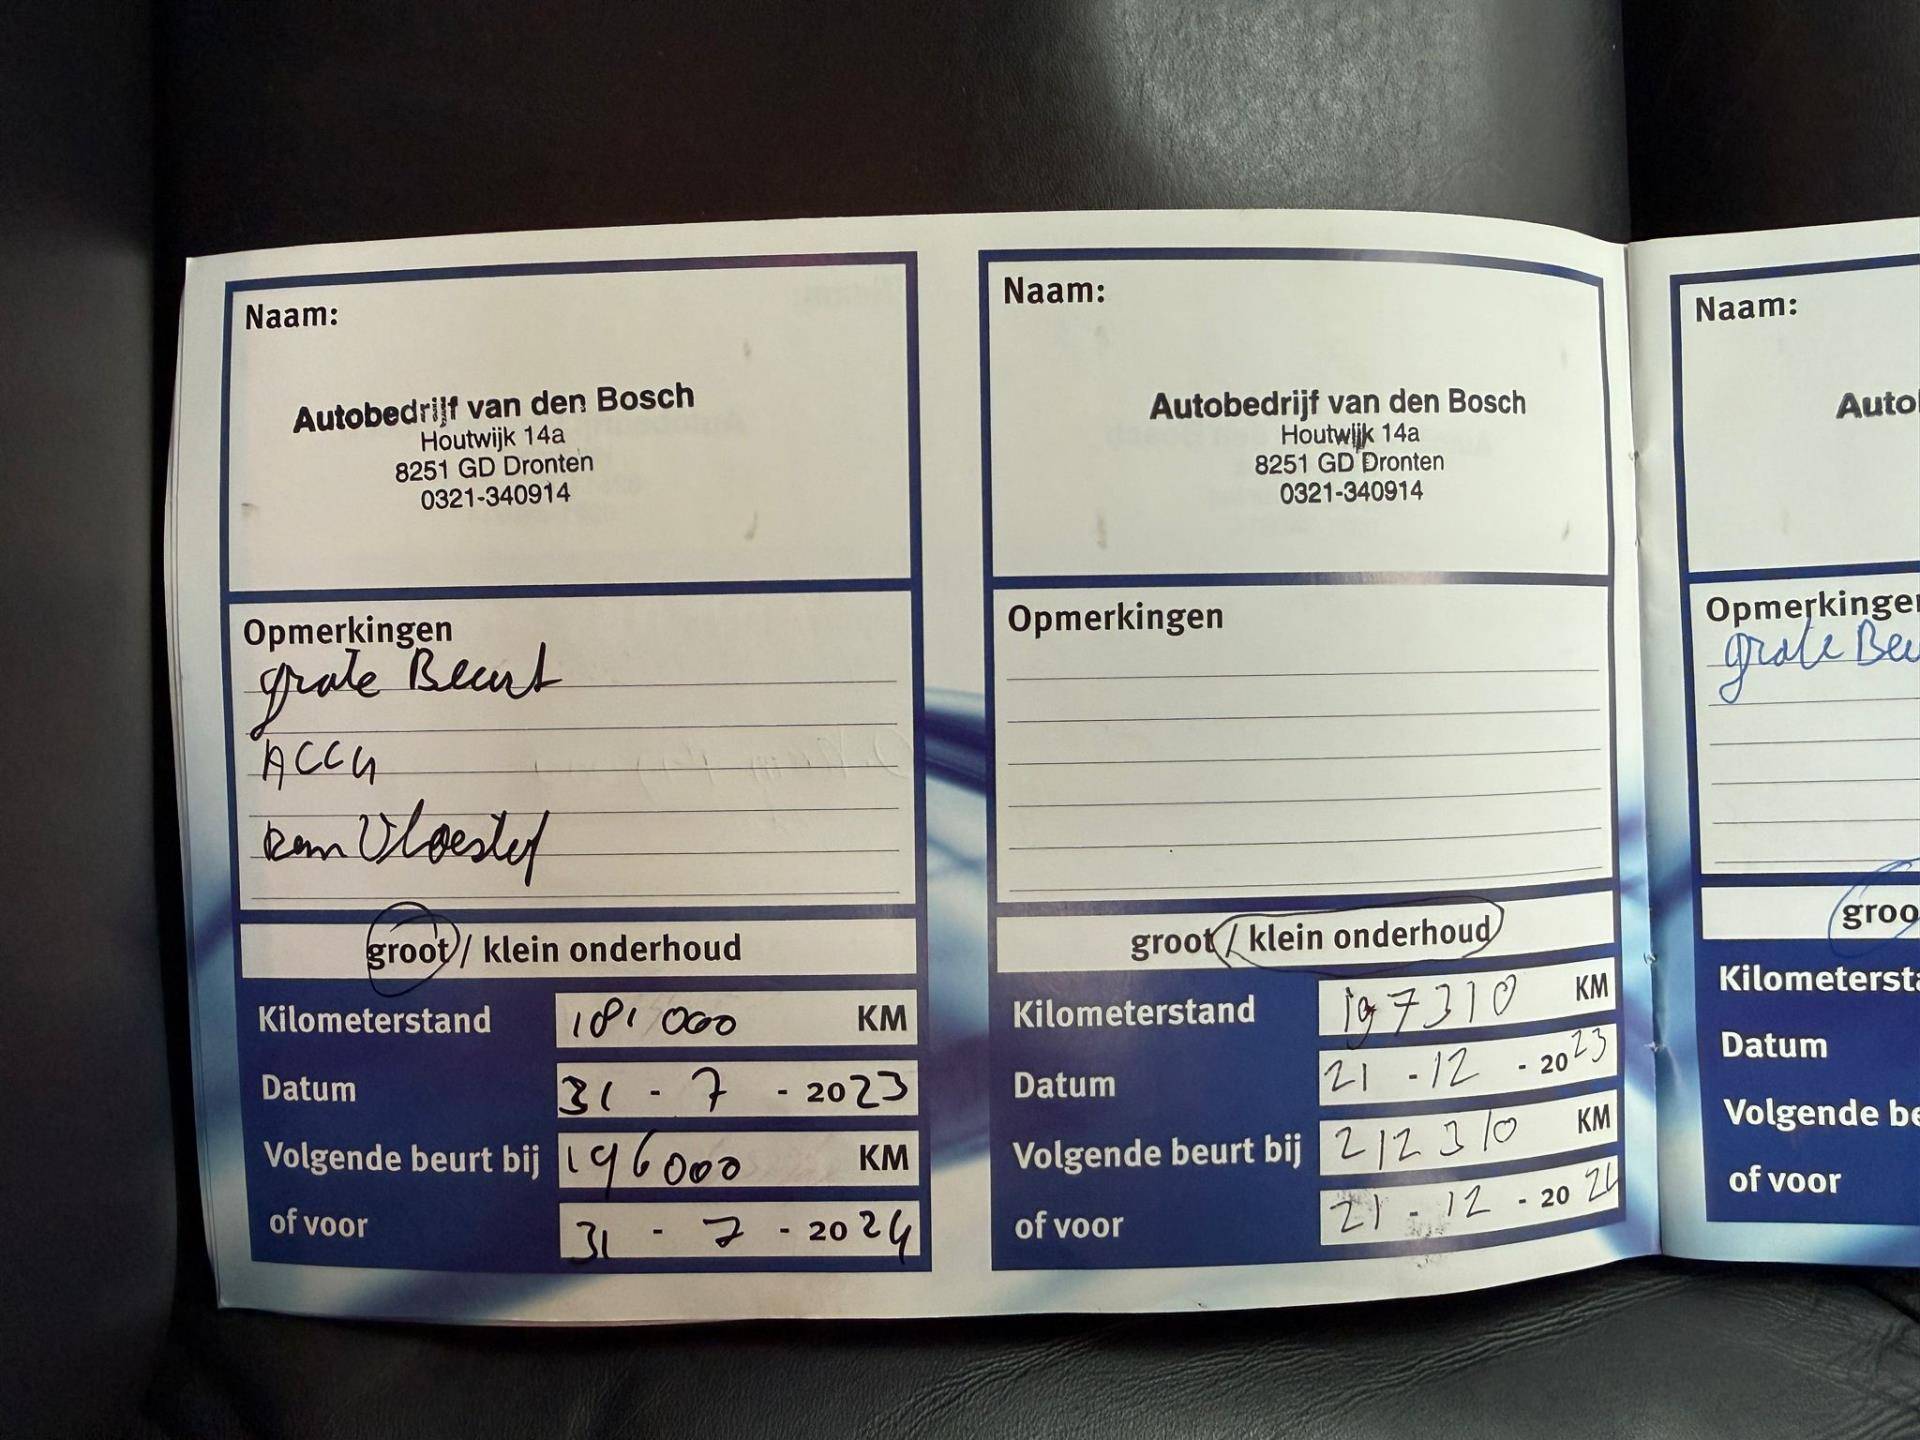 Naam:
Autobedrijf van den Bosch
Houtwijk 14a
8251 GD Dronten
0321-340914
Opmerkingen
grote Beurt
ACCU
Rem Vloestof
groot / klein onderhoud
Kilometerstand 181000 KM
Datum 31 - 7 - 2023
Volgende beurt bij 196000 KM
of voor 31 - 7 - 2024
Naam:
Autobedrijf van den Bosch
Houtwijk 14a
8251 GD Dronten
0321-340914
Opmerkingen
groot / klein onderhoud
Kilometerstand 197310 KM
Datum 21 - 12 - 2023
Volgende beurt bij 212310 KM
of voor 21 - 12 - 2024
Naam:
Auto
Opmerkinge
grote Beu
groo
Kilometerst
Datum
Volgende be
of voor